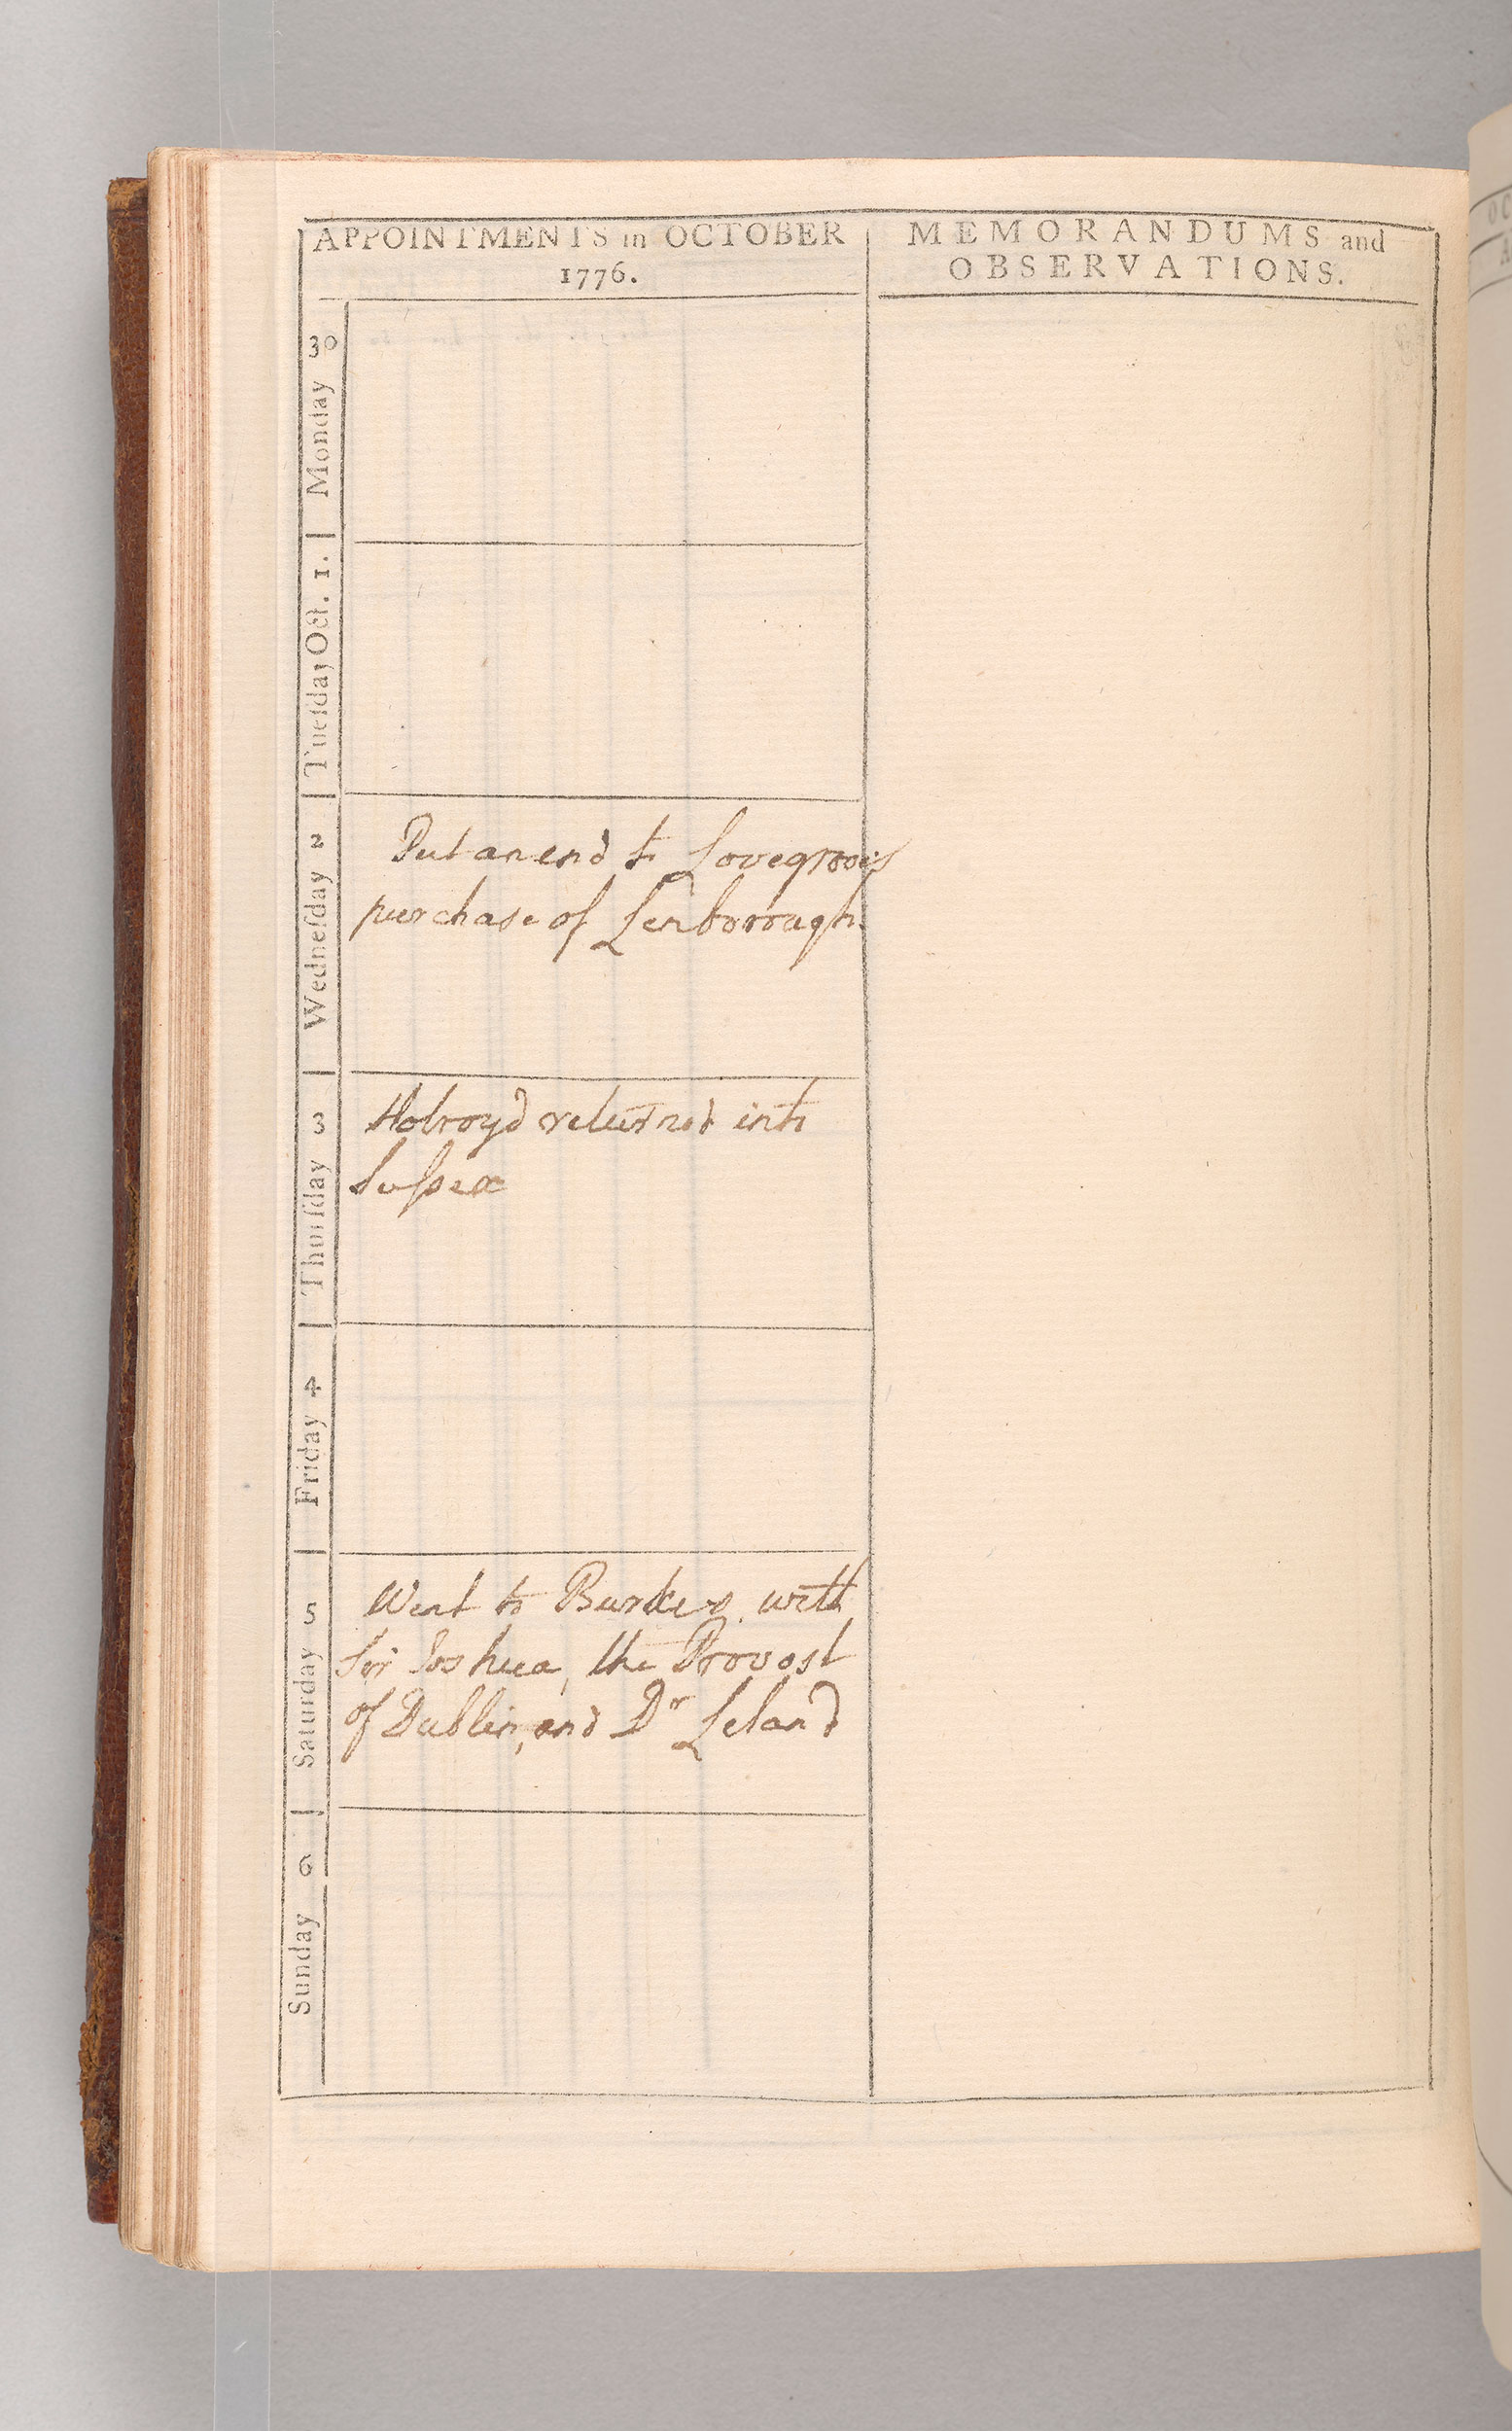 APPOINTMENTS in OCTOBER
1776.
MEMORANDUMS and
OBSERVATIONS.
Monday 30
Tueſday Oct. 1.
Wedneſday 2
Put an end to Lovegrove's
purchase of Lenborough.
Thurſday 3
Holroyd returned into
Suſsex
Friday 4
Saturday 5
Went to Burkes with
Sir Joshua, the Provost
of Dublin, and Dr Leland
Sunday 6